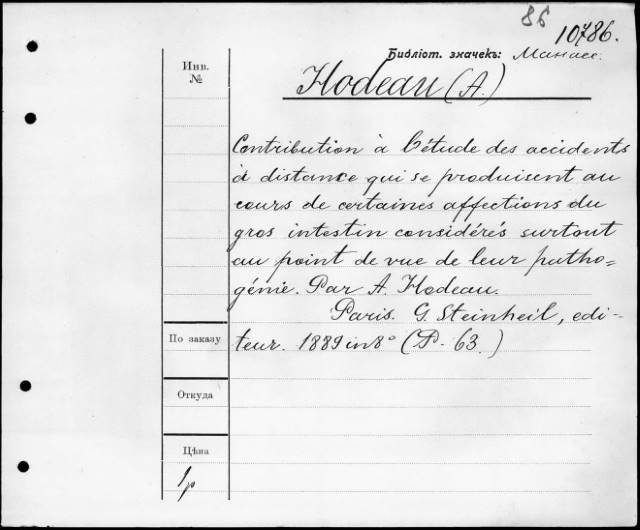 86
10786.
Библіот. значекъ: Манасс.
Инв.
№
Hodeau (A.)
Contribution à l'étude des accidents
à distance qui se produisent au
cours de certaines affections du
gros intestin considérés surtout
au point de vue de leur patho-
génie. Par A. Hodeau.
Paris. G. Steinheil, edi-
По заказу
teur. 1889 in 8° (P. 63.)
Откуда
Цѣна
1р